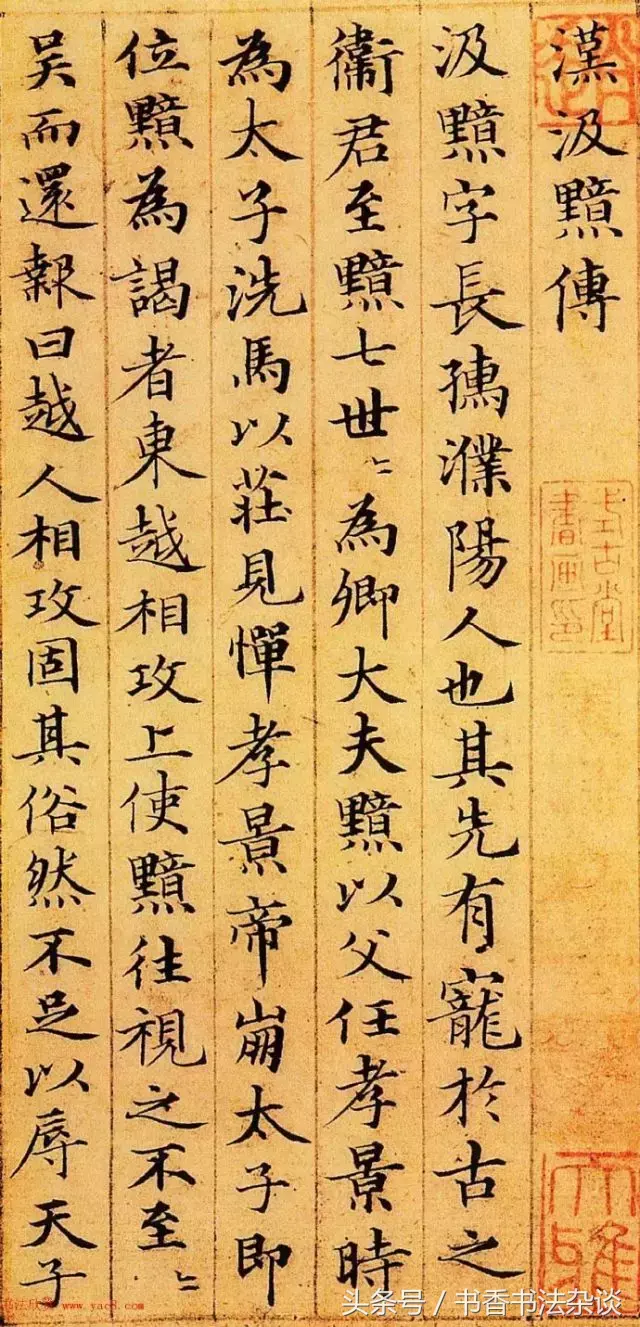 漢汲黯傳
汲黯字長孺濮陽人也其先有寵於古之
衞君至黯七世〻為卿大夫黯以父任孝景時
為太子洗馬以莊見憚孝景帝崩太子即
位黯為謁者東越相攻上使黯往視之不至〻
吳而還報曰越人相攻固其俗然不足以辱天子
式古堂
書畫印
头条号 / 书香书法杂谈